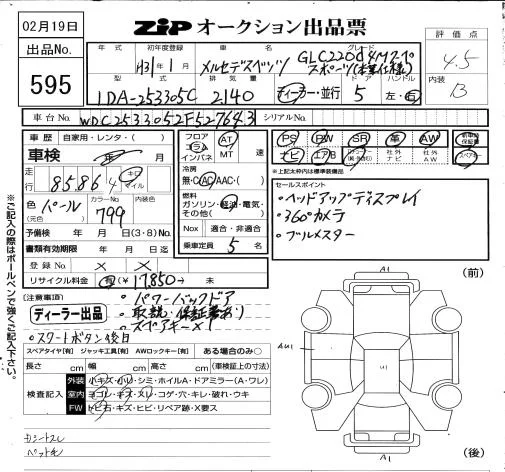 02月19日
ZIP オークション出品票
出品No.
595
評価点
4.5
内装
B
年式
初年度登録
H31年 1月
車名
メルセデスベンツ
グレード
GLC220d4Mスペ
スポーツ(本革仕様)
型式
LDA-253305C
排気量
2140
ディーラー・並行
ドア
5
ハンドル
左・右
車台No.
WDC2533052F527643
シリアルNo.
車歴
自家用・レンタ・( )
車検
年 月
走行
85,864
キロ
マイル
色
パール
(元色)
カラーNo.
799
内装色
予備検 年 月 日 (3・8) No.
書類有効期限 年 月 日迄
登録No. × ×
リサイクル料金 有(¥ 17,850 )→ 未
フロア
コラム
インパネ
AT
MT
速
冷房
無・C・AC・AAC・( )
燃料
ガソリン・軽油・電気・
その他( )
Nox 適合・非適合
乗車定員 5 名
PS PW SR 革 AW
新車時
保証書
ナビ エアB
社外
ナビ
社外
AW
スペアキー
※上記太枠内は標準装備品
セールスポイント
・ヘッドアップディスプレイ
・360°カメラ
・ブルメスター
(注意事項)
ディーラー出品
・パワーバックドア
・取説・保証書有り
・スペアキー×1
・スタートボタン後日
スペアタイヤ[有] ジャッキ工具[有] AWロックキー[有] ある場合のみ○
長さ cm 幅 cm 高さ cm (車検証上の寸法)
検査記入
外装 小キズ・小U・シミ・ホイルA・ドアミラー(A・ワレ)
室内 ヨゴレ・キズ・スレ・コゲ・穴・キレ・破れ・ウキ
FW トビ石・キズ・ヒビ・リペア跡・X要ス
※ご記入の際はボールペンで強くご記入下さい。
(前)
A1
AU1
A1
(後)